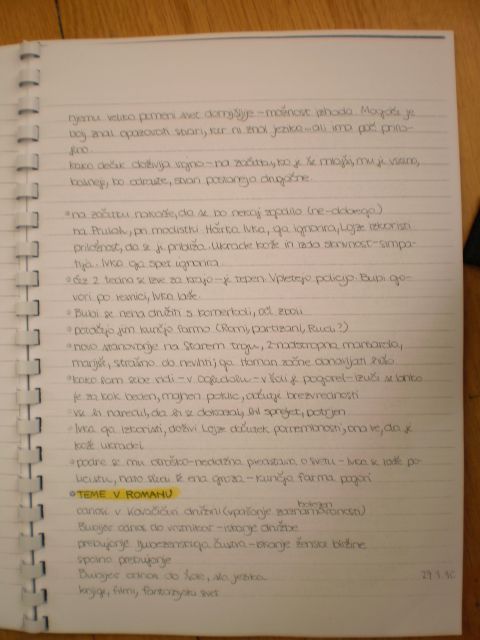 njemu veliko pomeni svet domišljije - možnost izhoda. Mogoče je
bolj znal opazovati stvari, ker ni znal jezika - ali ima pač priro-
jeno.
kako deček doživlja vojno - na začetku, ko je še mlajši, mu je vseeno,
kasneje, ko odraste, stvari postanejo drugačne.
• na začetku nakaže, da se bo nekaj zgodilo (ne-dobrega)
na Prulah, pri modistki Hôirka Ivka, ga ignorira, izkoristi
priložnost, da se ji približa. Ukrade kože in izda skrivnost - simpa-
tija. Ivka ga spet ignorira.
• čez 2 tedna se izve za krajo - je tepen. Vpletejo policijo. Bubi go-
vori po resnici, Ivka laže.
• Bubi se nena druži s
• požgejo jim kunčjo farmo (Romi, partizani, Rudi?)
• novo stanovanje na Starem trgu, 2-nadstropna mansarda,
manjše, strašno do nevihti, ga Homan začne ponavljati
• kako sam sebe vidi - v ogledalu - v šoli je pogorel -
je za kak beden, majhen poklic, občutje brezvrednosti
• vse bi naredil, da bi se dokazal, bil sprejet, potrjen
• Ivka ga izkoristi, doživi občutek pomembnosti, ona ve, da je
kože ukradel
• podre se mu otroško-nedolžna predstava o svetu - Ivka se laže po-
licistu, nato sledi še ena groza - kunčja farma pogori
• TEME V ROMANU
odnosi v Kovačičevi družini (vprašanje zaznamovanosti)
bolezen
Bubijev odnos do vrstnikov - iskanje družbe
prebujanje ljubezenskega čustva - iskanje ženske bližine
spolno prebujanje
Bubijev odnos do šole, sla jezika
29.1.10
knjige, filmi, fantazijski svet